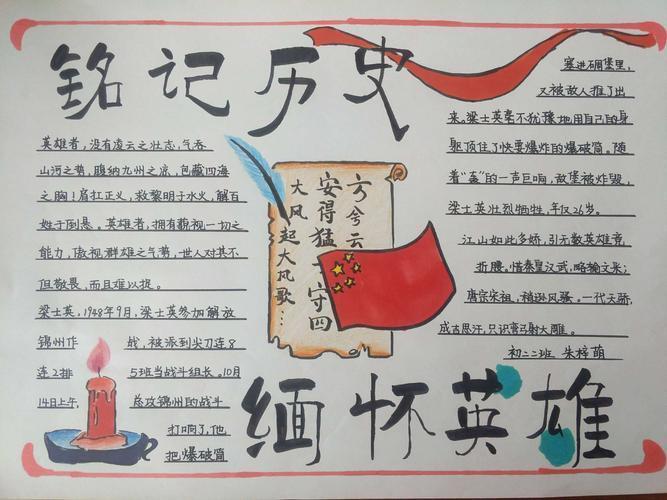 铭记历史
英雄者,没有凌云之壮志,气吞
山河之势,腹纳九州之底,包藏四海
之胸!肩扛正义,救黎明于水火,解百
姓于倒悬。英雄者,拥有藐视一切之
能力,傲视群雄之气势,世人对其不
但敬畏,而且难以捉。
梁士英,1948年9月,梁士英参加解放
锦州作 战,被派到尖刀连8
连2排 5班当战斗组长。10月
14日上午, 总攻锦州的战斗
打响了,他
把爆破筒
塞进碉堡里,
又被敌人推了出
来。梁士英毫不犹豫地用自己的身
躯顶住了快要爆炸的爆破筒。随
着“轰”的一声巨响,敌堡被炸毁,
梁士英壮烈牺牲,年仅26岁。
江山如此多娇,引无数英雄竞
折腰,惜秦皇汉武,略输文采;
唐宗宋祖,稍逊风骚。一代天骄,
成吉思汗,只识弯弓射大雕。
初二二班 朱梓萌
方兮云
安得猛 守四
大风起大风歌…
缅怀英雄